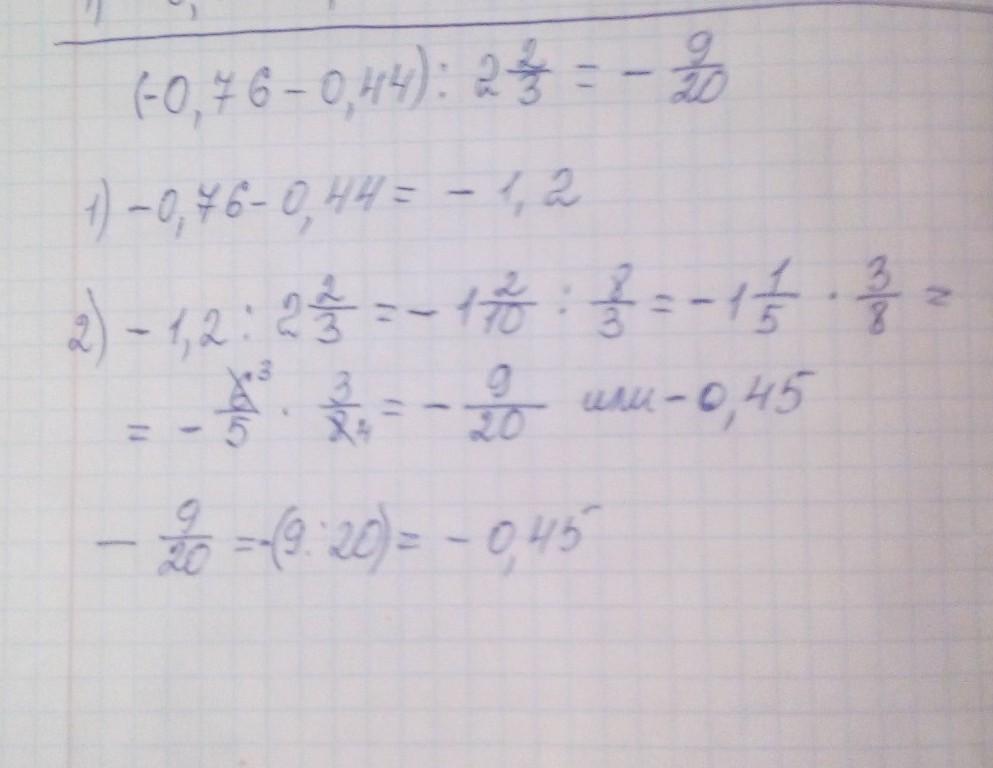 (-0,76 - 0,44) : 2 2/3 = - 9/20
1) -0,76 - 0,44 = - 1,2
2) - 1,2 : 2 2/3 = - 1 2/10 : 8/3 = - 1 1/5 · 3/8 =
= - 6/5 3 · 3/8 4 = - 9/20 или - 0,45
- 9/20 = -(9 : 20) = - 0,45